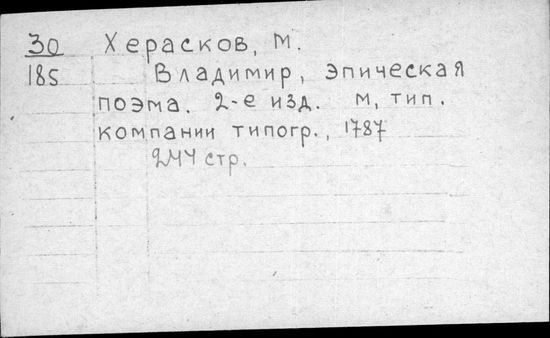 30 Херасков, М.
185 Владимир, эпическая
поэма. 2-е изд. М, тип.
компании типогр., 1787
244 стр.